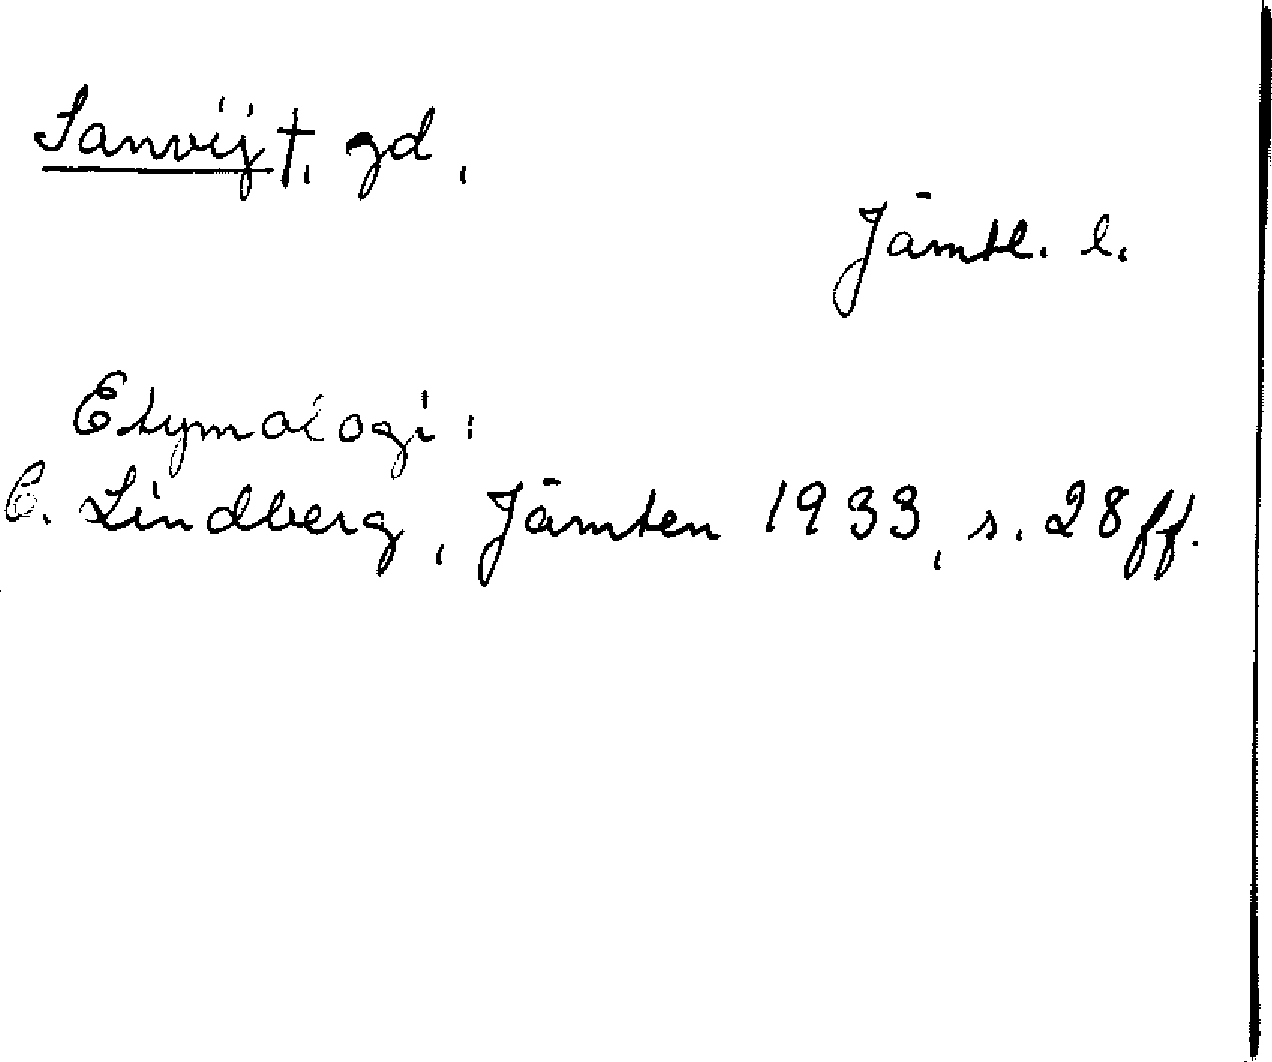 Sanvij †, gd,
Jämtl. l.
Etymologi:
C. Lindberg, Jämten 1933, s. 28 ff.